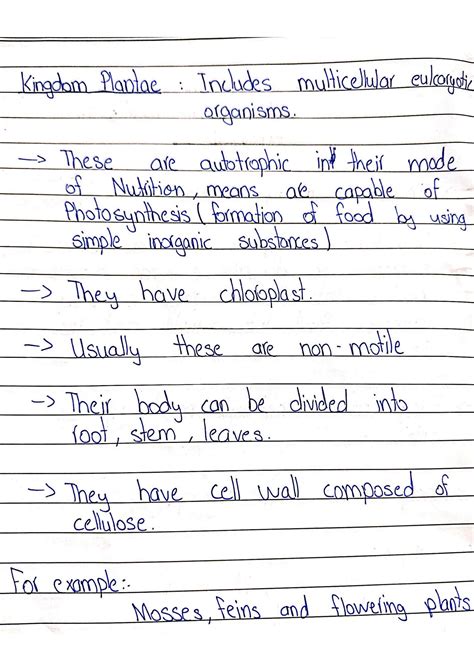 Kingdom Plantae : Includes multicellular eukaryotic
organisms.
→ These are autotrophic in their mode
of Nutrition, means are capable of
Photosynthesis ( formation of food by using
simple inorganic substances )
→ They have chloroplast.
→ Usually these are non-motile
→ Their body can be divided into
root, stem, leaves.
→ They have cell wall composed of
cellulose.
For example:-
Mosses, feins and flowering plants